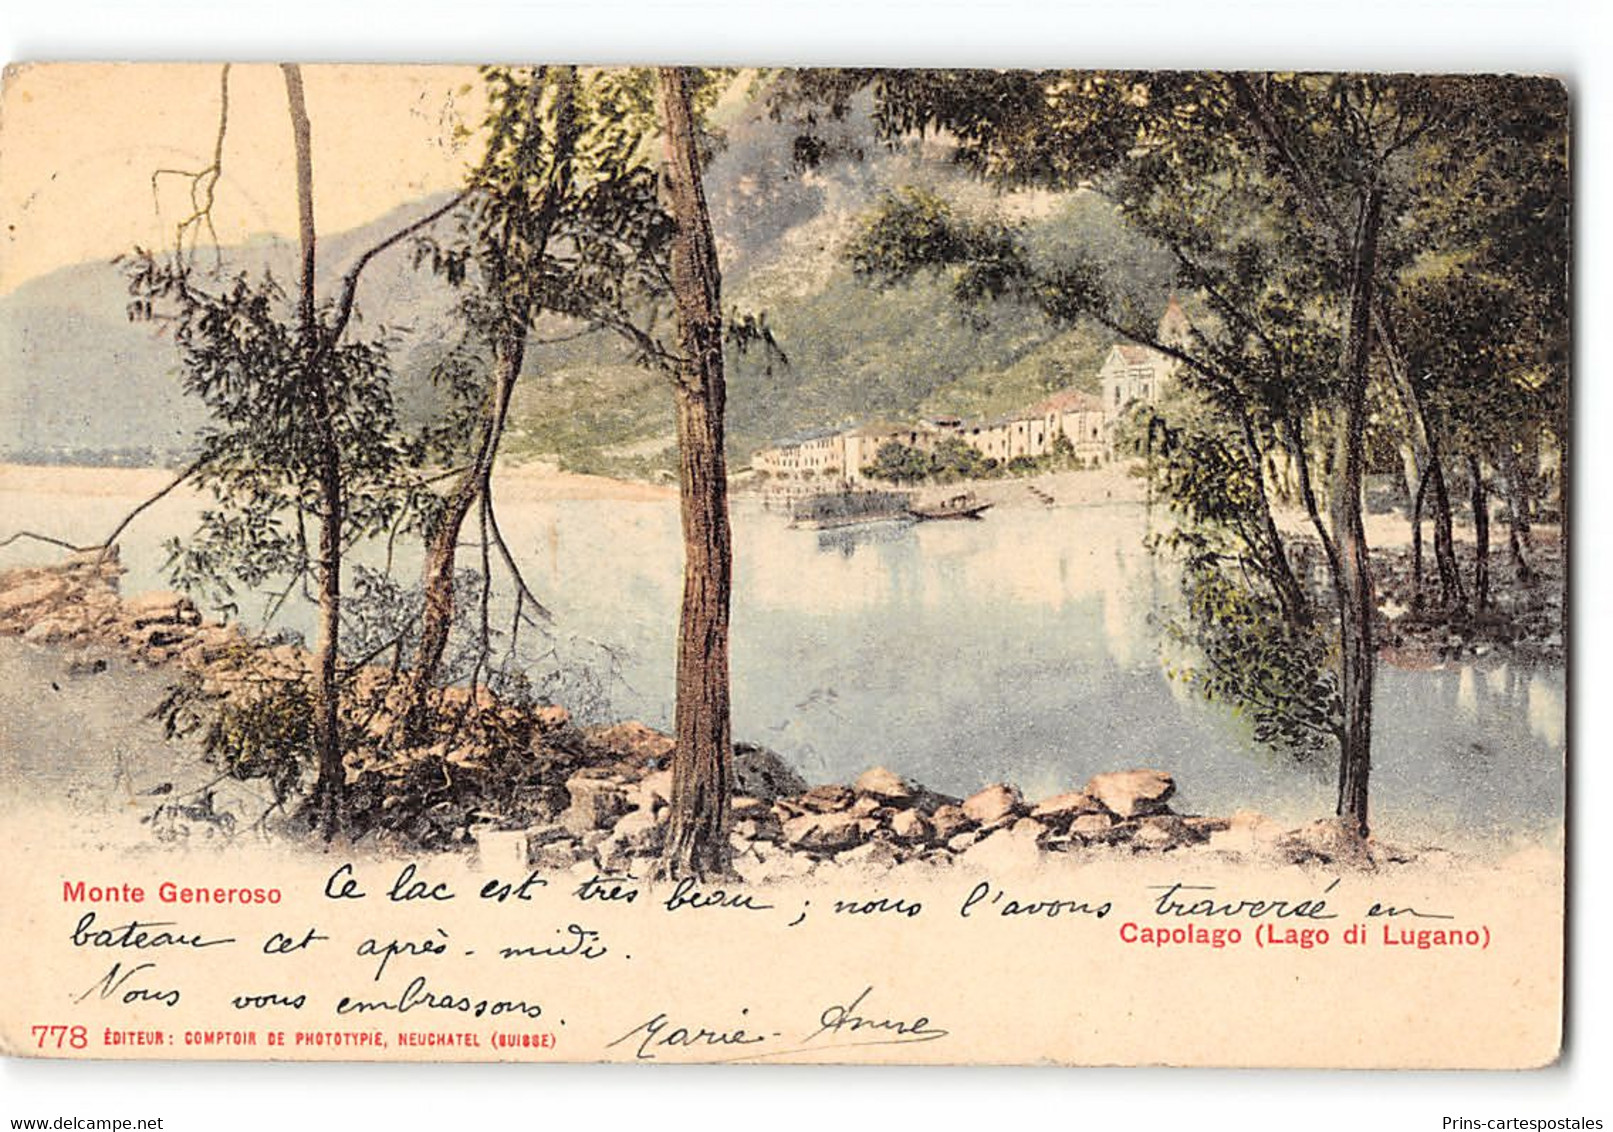 Monte Generoso
Ce lac est très beau ; nous l'avons traversé en
Capolago (Lago di Lugano)
bateau cet après-midi.
Nous vous embrassons.
Marie-Anne
778 ÉDITEUR: COMPTOIR DE PHOTOTYPIE, NEUCHATEL (SUISSE)
delcampe.net
Prins-cartespostales